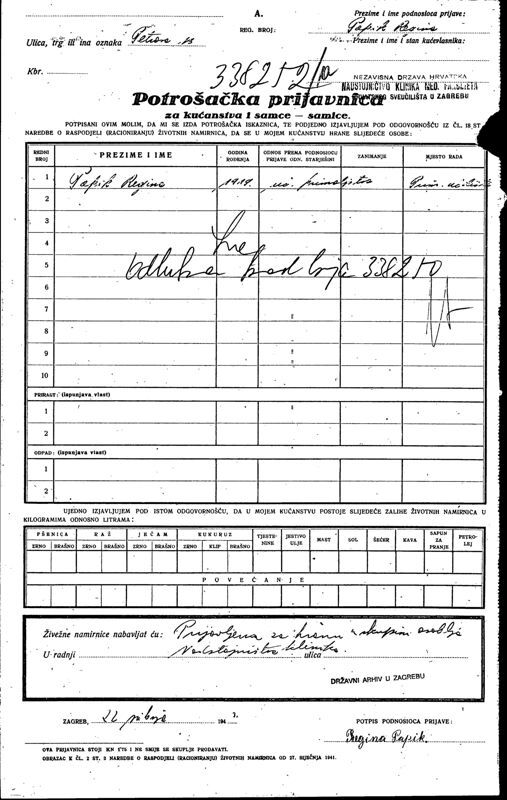 A.
Prezime i ime podnosioca prijave:
REG. BROJ:
Papik Regina
Ulica, trg ili ina oznaka Petrova 13
Prezime i ime i stan kućevlasnika:
Kbr.
338252/10
NEZAVISNA DRŽAVA HRVATSKA
NADSTOJNIČTVO KLINIKA MED. FAKULTETA
HRVATSKOG SVEUČILIŠTA U ZAGREBU
Potrošačka prijavnica
za kućanstva i samce — samice.
POTPISANI OVIM MOLIM, DA MI SE IZDA POTROŠAČKA ISKAZNICA, TE PODJEDNO IZJAVLJUJEM POD ODGOVORNOŠĆU IZ ČL. 18 ST.
NAREDBE O RASPODJELI (RACIONIRANJU) ŽIVOTNIH NAMIRNICA, DA SE U MOJEM KUĆANSTVU HRANE SLIJEDEĆE OSOBE:
REDNI BROJ PREZIME I IME GODINA ROĐENJA ODNOS PREMA PODNOSIOCU PRIJAVE ODN. STARJEŠINI ZANIMANJE MJESTO RADA
1 Papik Regina 1919.
2
3
4
5 Odluka kod broja 338250
6
7
8
9
10
PRIRAST: (ispunjava vlast)
1
2
OTPAD: (ispunjava vlast)
1
2
UJEDNO IZJAVLJUJEM POD ISTOM ODGOVORNOŠĆU, DA U MOJEM KUĆANSTVU POSTOJE SLIJEDEĆE ZALIHE ŽIVOTNIH NAMIRNICA U
KILOGRAMIMA ODNOSNO LITRAMA:
PŠENICA RAŽ JEČAM KUKURUZ TJESTENINE JESTIVO ULJE MAST SOL ŠEĆER KAVA SAPUN ZA PRANJE PETROLEJ
ZRNO BRAŠNO ZRNO BRAŠNO ZRNO BRAŠNO ZRNO KLIP BRAŠNO
POVEĆANJE
Živežne namirnice nabavljat ću: Prijavljena za hranu
U radnji Nadstojništvo klinika ulica
DRŽAVNI ARHIV U ZAGREBU
ZAGREB, 22 194
POTPIS PODNOSIOCA PRIJAVE:
Regina Papik
OVA PRIJAVNICA STOJI KN 0'75 I NE SMIJE SE SKUPLJE PRODAVATI.
OBRAZAC K ČL. 2 ST. 2 NAREDBE O RASPODJELI (RACIONIRANJU) ŽIVOTNIH NAMIRNICA OD 27. SIJEČNJA 1941.